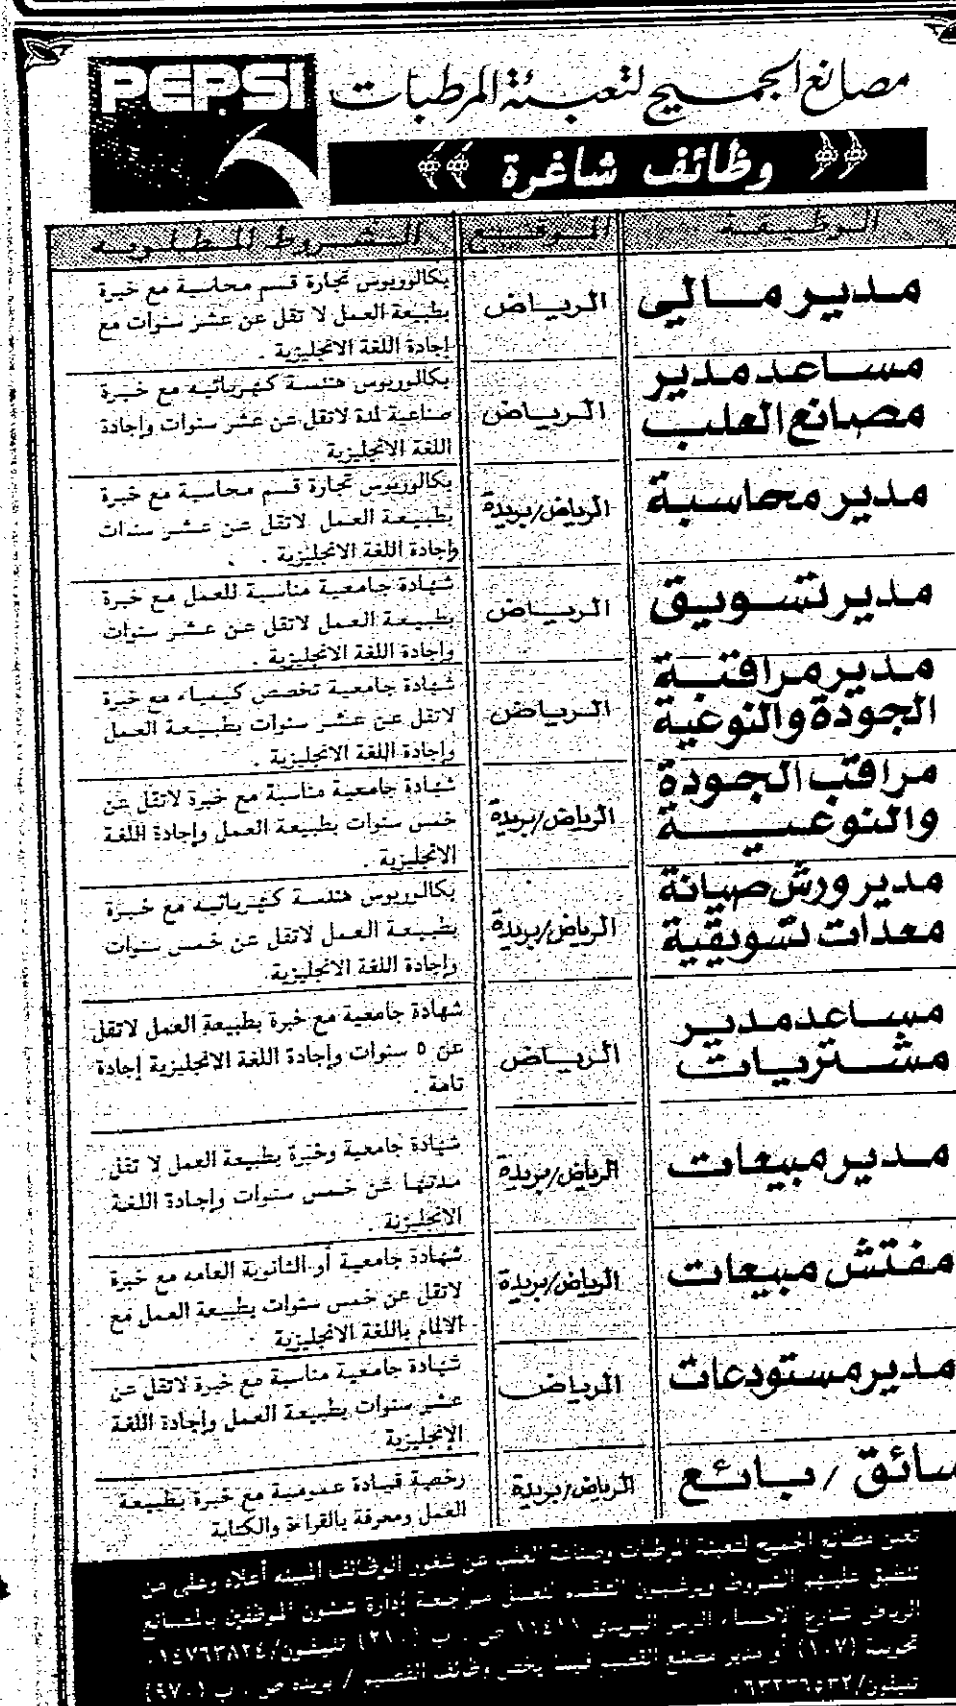 PEPSI
مصانع الجميح لتعبئة المرطبات
وظائف شاغرة
الوظيفة الموقع الشروط المطلوبة
مدير مالي
الرياض
بكالوريوس تجارة قسم محاسبة مع خبرة
بطبيعة العمل لا تقل عن عشر سنوات مع
إجادة اللغة الانجليزية .
مساعد مدير
مصانع العلب
الرياض
بكالوريوس هندسة كهربائية مع خبرة
صناعية لمدة لاتقل عن عشر سنوات وإجادة
اللغة الانجليزية
مدير محاسبة
الرياض/بريدة
بكالوريوس تجارة قسم محاسبة مع خبرة
بطبيعة العمل لاتقل عن عشر سنوات
وإجادة اللغة الانجليزية .
مدير تسويق
الرياض
شهادة جامعية مناسبة للعمل مع خبرة
بطبيعة العمل لاتقل عن عشر سنوات
وإجادة اللغة الانجليزية .
مدير مراقبة
الجودة والنوعية
الرياض
شهادة جامعية تخصص كيمياء مع خبرة
لاتقل عن عشر سنوات بطبيعة العمل
وإجادة اللغة الانجليزية .
مراقب الجودة
والنوعية
الرياض/بريدة
شهادة جامعية مناسبة مع خبرة لاتقل عن
خمس سنوات بطبيعة العمل وإجادة اللغة
الانجليزية .
مدير ورش صيانة
معدات تسويقية
الرياض/بريدة
بكالوريوس هندسة كهربائية مع خبرة
بطبيعة العمل لاتقل عن خمس سنوات
وإجادة اللغة الانجليزية.
مساعد مدير
مشتريات
الرياض
شهادة جامعية مع خبرة بطبيعة العمل لاتقل
عن ٥ سنوات وإجادة اللغة الانجليزية إجادة
تامة .
مدير مبيعات
الرياض/بريدة
شهادة جامعية وخبرة بطبيعة العمل لا تقل
مدتها عن خمس سنوات وإجادة اللغة
الانجليزية .
مفتش مبيعات
الرياض/بريدة
شهادة جامعية أو الثانوية العامه مع خبرة
لاتقل عن خمس سنوات بطبيعة العمل مع
الالمام باللغة الانجليزية
مدير مستودعات
الرياض
شهادة جامعية مناسبة مع خبرة لاتقل عن
عشر سنوات بطبيعة العمل وإجادة اللغة
الإنجليزية
سائق / بائع
الرياض/بريدة
رخصة قيادة عمومية مع خبرة بطبيعة
العمل ومعرفة بالقراءة والكتابة
تعلن مصانع الجميح لتعبئة المرطبات وصناعة العلب عن شغور الوظائف المبينه أعلاه وعلى من
تنطبق عليهم الشروط ويرغبون التقدم للعمل مراجعة إدارة شئون الموظفين بالمصانع
الرياض شارع الاحساء الرمز البريدي ١١٤١١ ص . ب (٢١٠) تليفون/٠١٤٧٦٣٨٢٤
تحويلة (١٠٧) أو مدير مصنع القصيم فيما يختص وظائف القصيم / بريده ص . ب (٩٧٠)
تليفون/٠٦٣٢٣٦٥٣٢